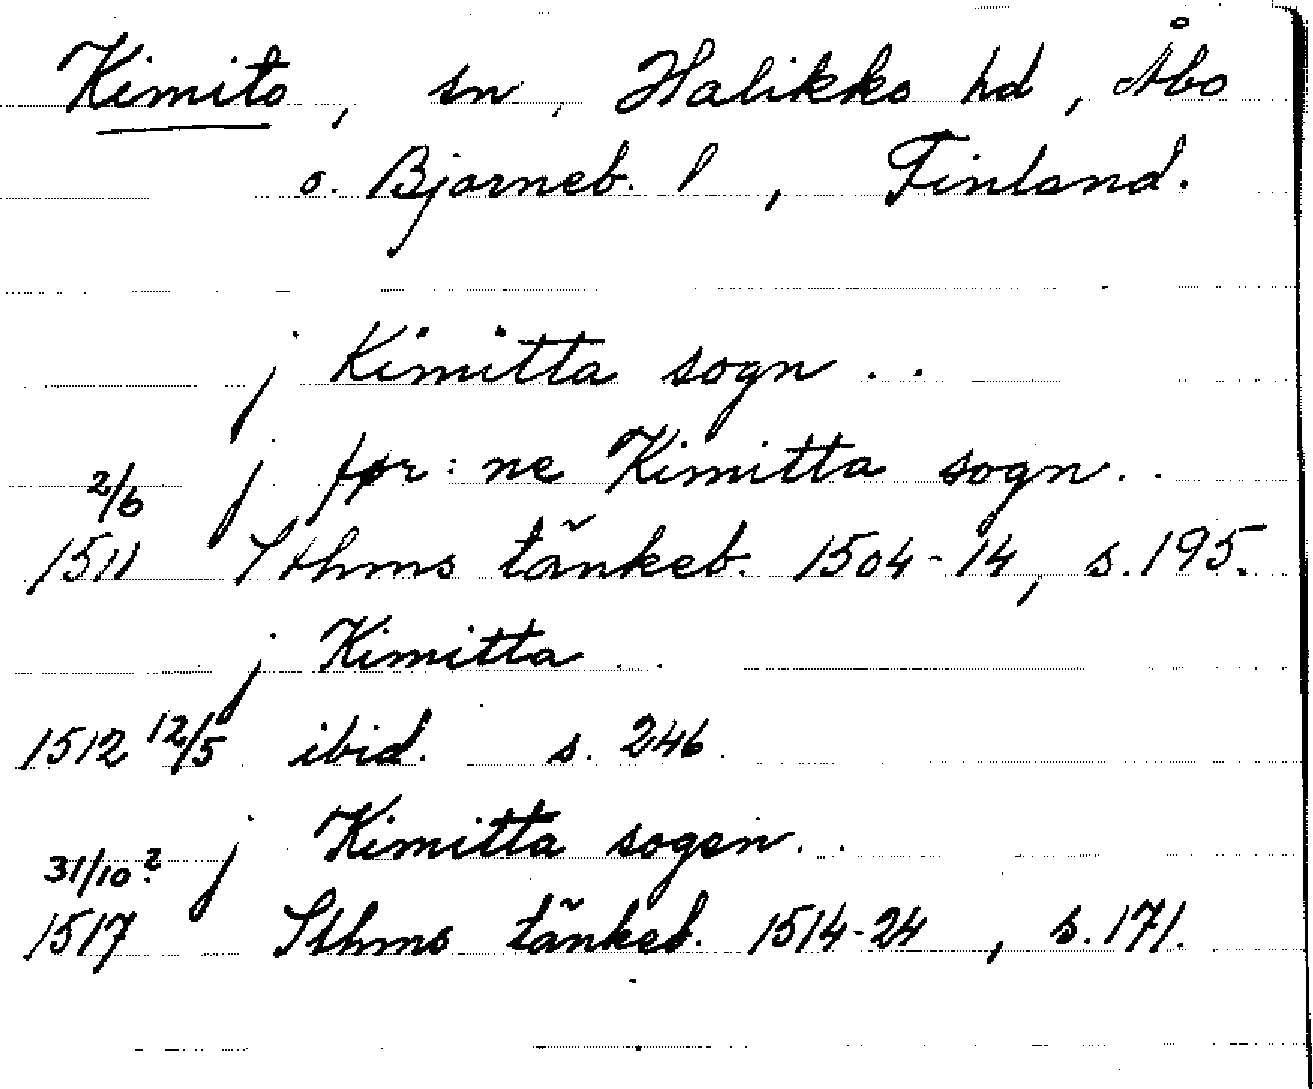 Kimito, sn, Halikko hd, Åbo
o. Bjorneb. l, Finland.
j Kimitta sogn ..
2/6 j for: ne Kimitta sogn..
1511 Sthms tänkeb. 1504-14, s. 195.
j Kimitta ..
1512 12/5 ibid. s. 246.
31/10? j Kimitta sogen..
1517 Sthms tänkeb. 1514-24, s. 171.